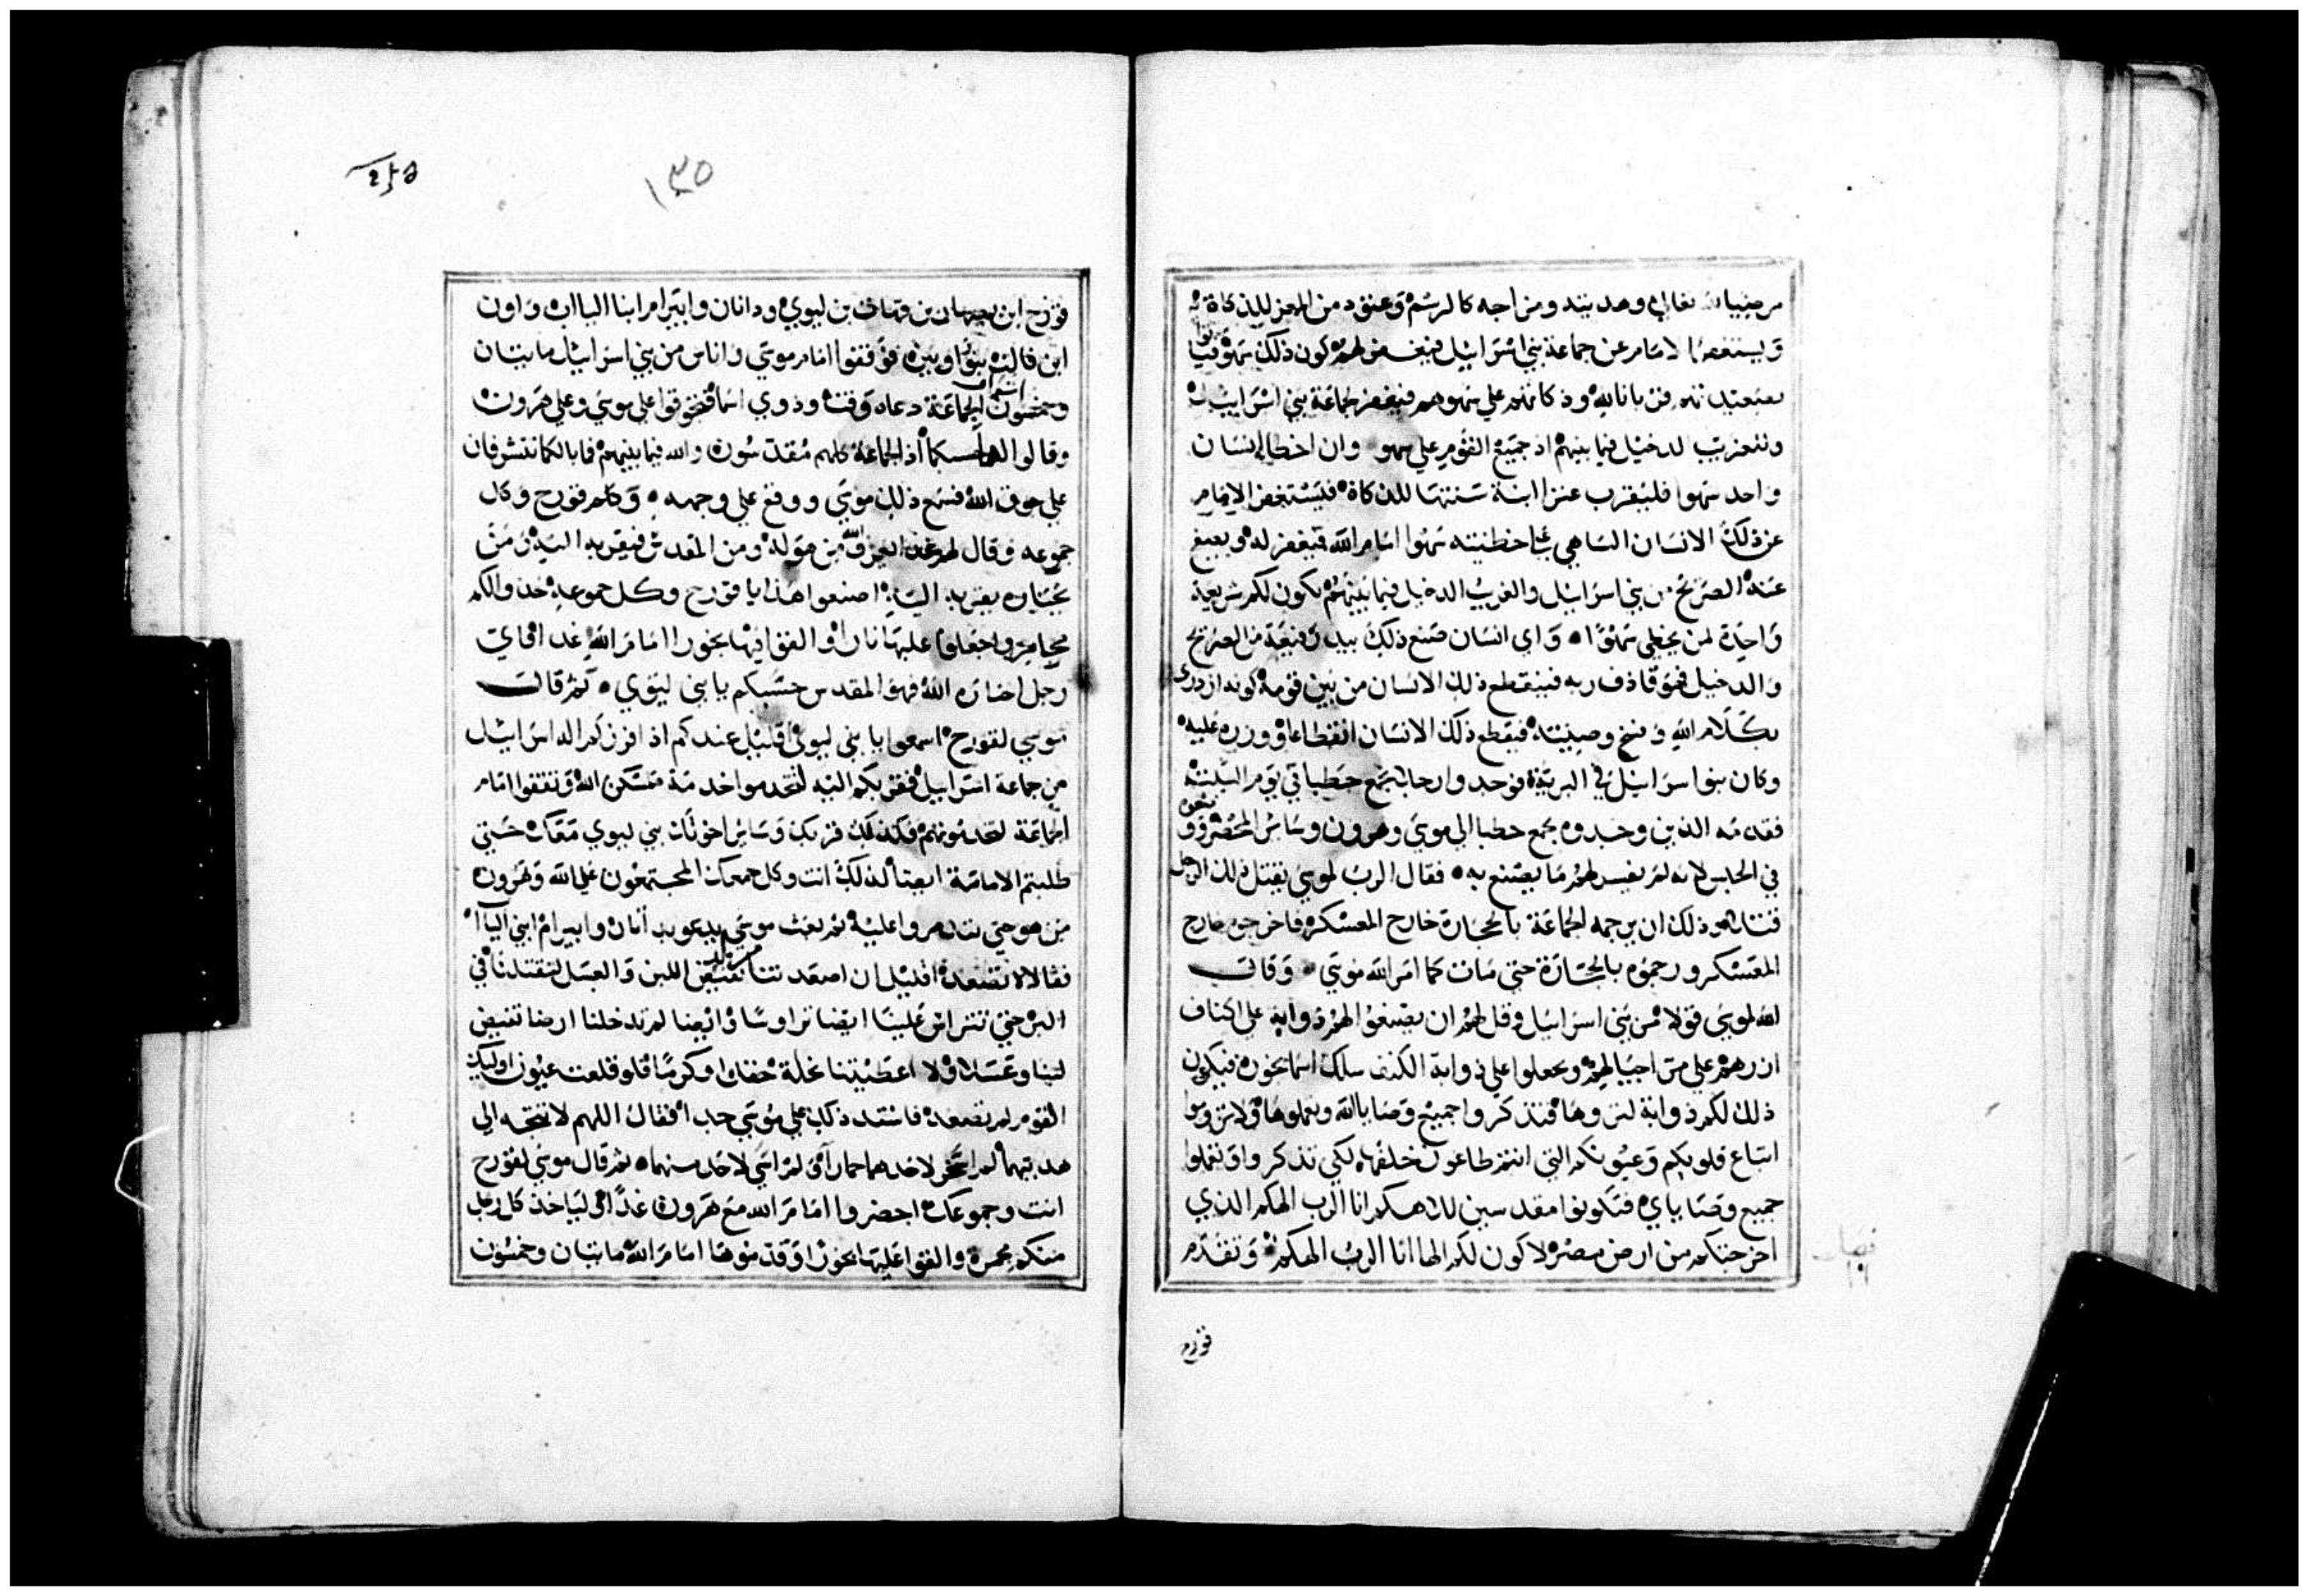 مرضيا لله تعالي وهديته ومزاجه كالرسم وعتود من المعز للذكاة
ويستغفر الامام عن جماعة بني اسراييل فيغفر لهم كون ذلك سهو
قربانا لله وذكاتهم علي سهوهم فيغفر لجماعة بني اسراييل
وللغريب الدخيل فيما بينهم اذ جميع القوم علي سهو وان اخطا انسان
واحد سهوا فليقرب عنزا ابنة سنتها للذكاة فيستغفر الامام
عن ذلك الانسان الساهي خطيته سهوا امام الله فيغفر له
عنه الصريح من بني اسراييل والغريب الدخيل فيما بينهم يكون لكم شريعة
واحدة لمن يخطي سهوا واي انسان صنع ذلك بيد رفيعة من الصريح
والدخيل فهو قاذف ربه فينقطع ذلك الانسان من بين قومه كونه ازدري
بكلام الله وفسخ وصيته فيقطع ذلك الانسان انقطاعا ووزره عليه
وكان بنوا اسراييل في البرية فوجدوا رجلا يجمع حطبا في يوم السبت
فقدمه الذين وجدوه يجمع حطبا الي موسي وهرون وساير المحضر
في الحبس لانه لم يفسر لهم ما يصنع به فقال الرب لموسي يقتل ذلك الرجل
ذلك ان يرجمه الجماعة بالحجارة خارج المعسكر فاخرجوه خارج
المعسكر ورجموه بالحجارة حتي مات كما امر الله موسي وقال
الله لموسي قولا مر بني اسراييل وقل لهم ان يصنعوا لهم ذوابة علي اكناف
ازرهم علي مر اجيالهم ويجعلوا علي ذوابة الكنف سلك اسمانجون فيكون
ذلك لكم ذوابة لتروها فتذكروا جميع وصايا الله وتعملوها ولا تزوروا
اتباع قلوبكم وعيونكم التي انتم طاعون خلفها لكي تذكروا وتعملوا
جميع وصاياي فتكونوا مقدسين لالاهكم انا الرب الهكم الذي
اخرجتكم من ارض مصر لاكون لكم الها انا الرب الهكم وتقدم
قورح
١٣٥
قورح ابن يصهار بن قهات بن ليوي وداتان وابيرام ابنا الياب واون
ابن فالت بنوا روبين فوقفوا امام موسي واناس من بني اسراييل مايتان
وخمسون الجماعة دعاه وقت وذوي اسما فتجوقوا علي موسي وعلي هرون
وقالوا لهما حسبكما اذ الجماعة كلهم مقدسون والله فيما بينهم فما بالكما تتشرفان
علي جوق الله فسمع ذلك موسي ووقع علي وجهه وكلم قورح وكل
جموعه وقال لهم غدا يعرف الله من هو له ومن المقدس فيقربه اليه ومن
يختاره يقربه اليه اصنعوا هذا يا قورح وكل جموعه خذوا لكم
مجامر واجعلوا عليها نارا والقوا فيها بخورا امام الله غدا فاي
رجل اختاره الله فهو المقدس حسبكم يا بني ليوي ثم قال
موسي لقورح اسمعوا يا بني ليوي اقليل عندكم اذ افرزكم اله اسراييل
من جماعة اسراييل فقربكم اليه لتخدموا خدمة مسكن الله وتقفوا امام
الجماعة لتخدمونهم فكذلك قربك وساير اخوتك بني ليوي معك حتي
طلبتم الامامة ايضا لذلك انت وكل جمعك المجتمعون علي الله وهرون
من هو حتي تتذمروا عليه ثم بعث موسي يدعو بداتان وابيرام ابني الياب
فقالا لا نصعد اقليل ان اصعدتنا من بلد تفيض اللبن والعسل لتقتلنا في
البر حتي تتراس علينا ايضا تراوسا وايضا لم تدخلنا ارضا تفيض
لبنا وعسلا ولا اعطيتنا نحلة حقلا وكرما فلو قلعت عيون اوليك
القوم لم نصعد فاشتد ذلك علي موسي جدا فقال اللهم لا تتجه الي
هديتهما لم اسخر لاحدهما حمارا ولم اسي لاحد منهما ثم قال موسي لقورح
انت وجموعك احضروا امام الله مع هرون غدا لياخذ كل رجل
منكم مجمرة والقوا عليها بخورا وقدموها امام الله مايتان وخمسون